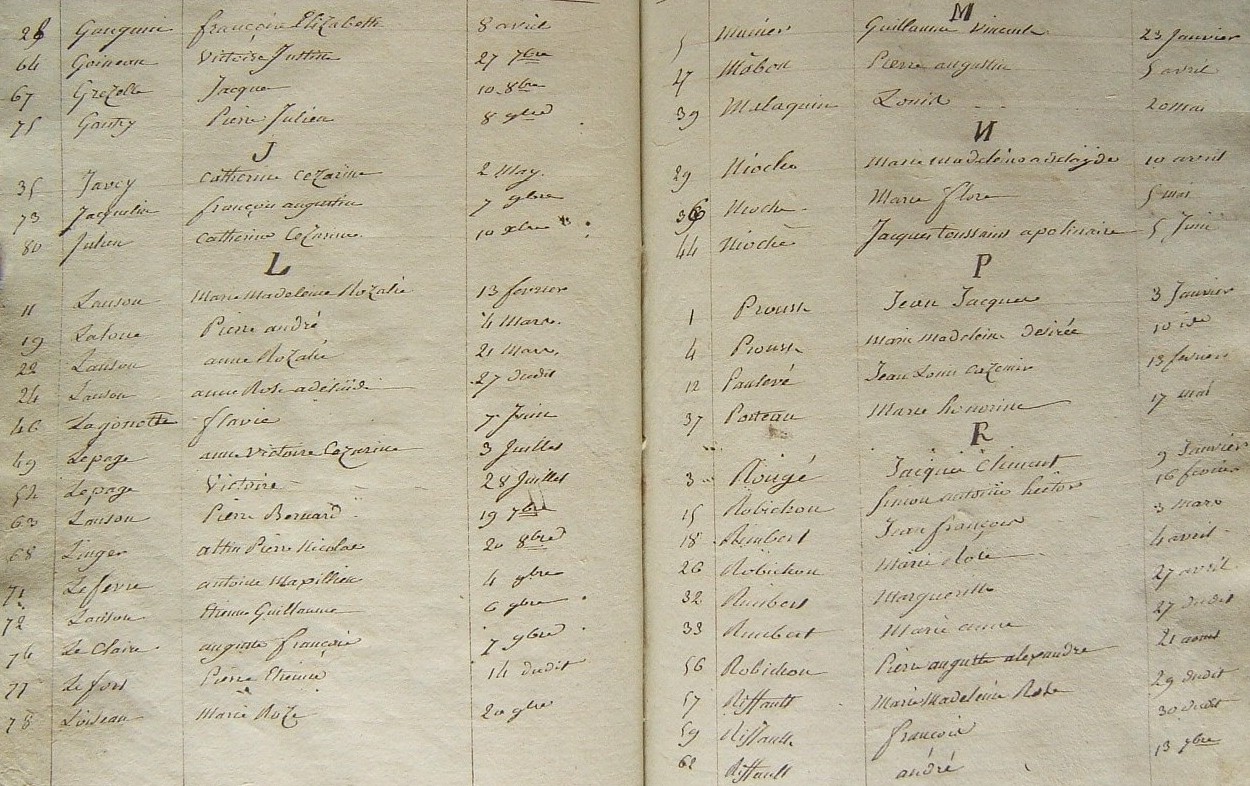 28 Gauguin françois Elizabeth 8 avril
64 Goineau Victoire Justine 27 7bre
67 Grezelle Jacque 10 8bre
75 Gautry Pierre Julien 8 9bre
J
35 Javoy catherine cezarine 2 May
73 Jacquelin françois augustin 7 9bre
80 Julien catherine cezarine 10 xbre
L
11 Lanson Marie Madeleine Rozalie 13 fevrier
19 Latour Pierre andré 4 Mars
22 Lanson anne Rozalie 21 Mars
24 Lanson anne Rose adelaide 27 dudit
46 Lagonotte flavie 7 Juin
49 Lepage anne Victoire Cezarine 3 Juillet
52 Lepage Victoire 28 Juillet
63 Lanson Pierre Bernard 19 7bre
68 Linger Pierre Nicolas 20 8bre
71 Lefevre antoine 4 9bre
72 Lanson Etienne Guillaume 6 9bre
74 Le Claire auguste françois 7 9bre
77 Le fort Pierre Etienne 14 dudit
78 Loiseau Marie Roze 20 9bre
M
5 Guillaume Vincent 23 Janvier
27 Mabou Pierre augustin 5 avril
39 Malaquin Louis 20 mai
N
29 Nioche Marie Madeleine adelayde 10 avril
36 Nioche Marie flore 5 mai
44 Nioche Jacques toussains apolinaire 5 Juin
P
1 Proust Jean Jacques 3 Janvier
4 Proust Marie Madeleine desirée 10 id
12 Paulevé Jean Louis cezaire 13 fevrier
37 Poiteau Marie honorine 17 mai
R
3 Rougé Jacques Climent 9 Janvier
15 Robichon Simon antoine hector 16 fevrier
18 Rimbert Jean françois 3 mars
26 Robichon Marie Rose 4 avril
32 Rimbert Marguerite 27 avril
33 Rimbert Marie anne 27 dudit
56 Robichon Pierre auguste alexandre 21 aout
57 Riffault Marie Madeleine Rose 29 dudit
59 Riffault françois 30 dudit
62 Riffault andré 13 7bre